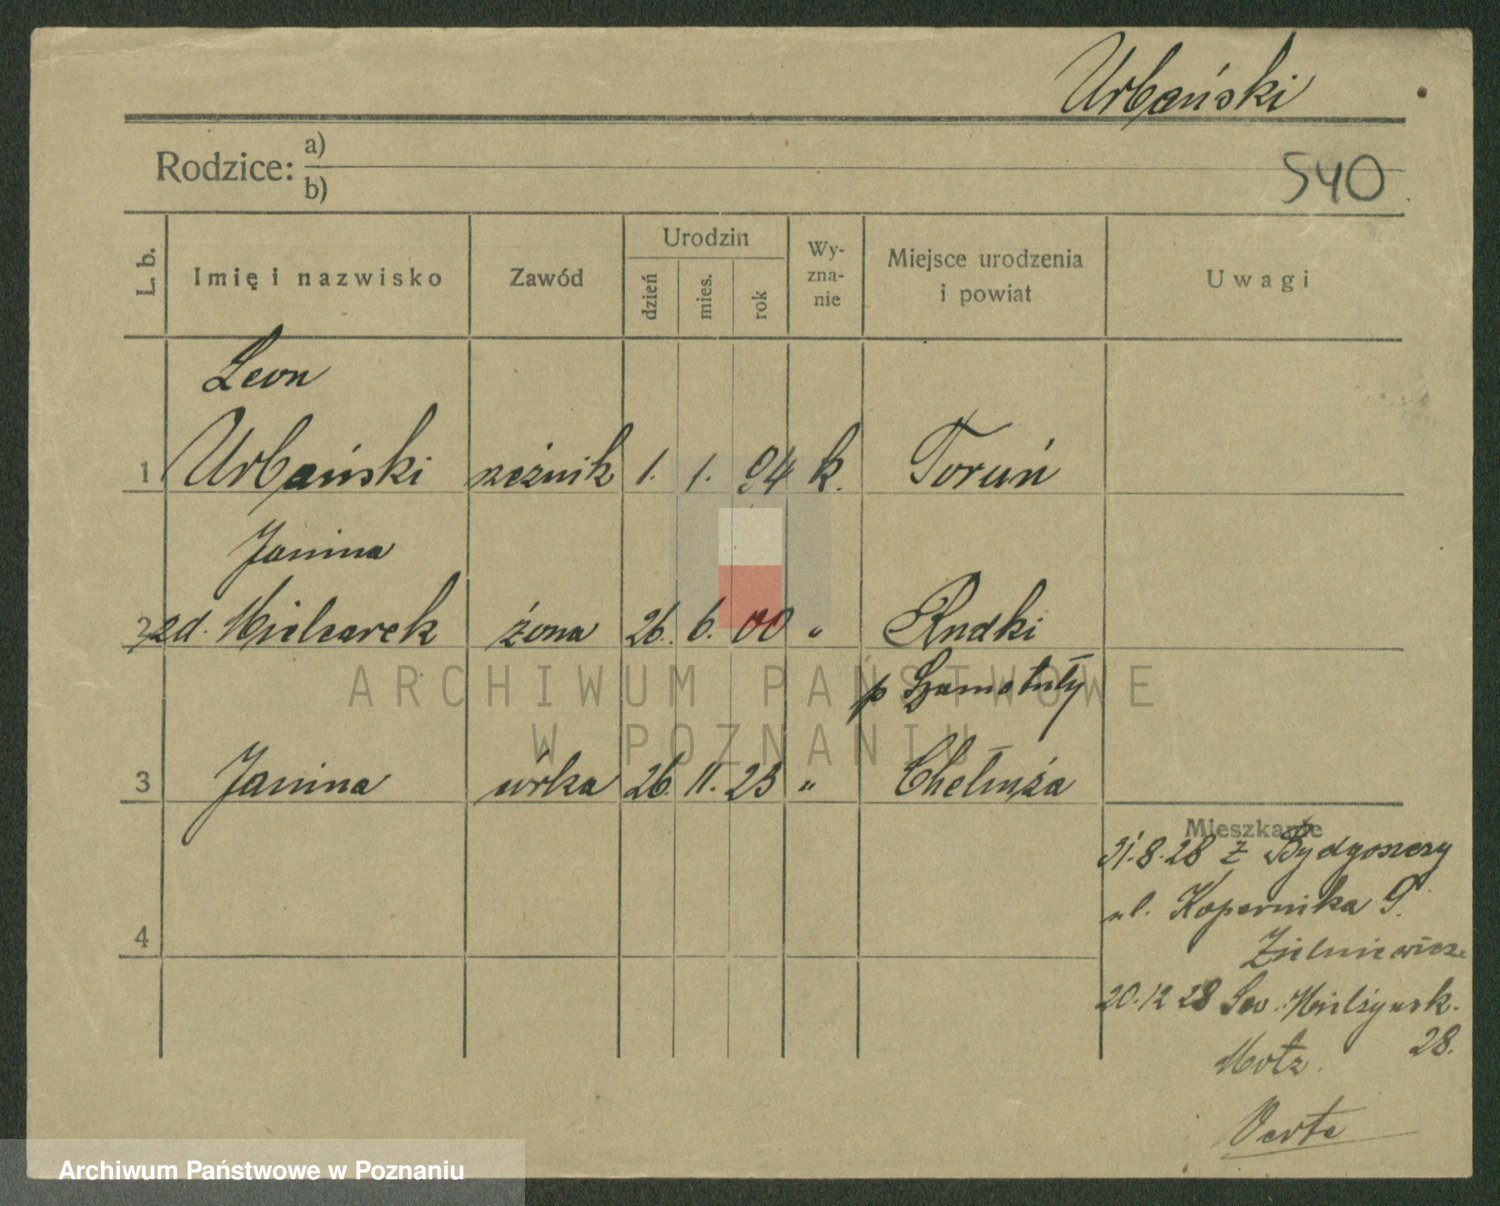 Urbański
Rodzice: a)
b)
540
L. b. Imię i nazwisko Zawód Urodzin dzień mies. rok Wy-zna-nie Miejsce urodzenia i powiat Uwagi
Leon
1 Urbański rzeźnik 1. 1. 94 k. Toruń
Janina
2 zd. Mielcarek żona 26. 6. 00 " Rudki
p Szamotuły
3 Janina córka 26. 11. 23 " Chełmża
Mieszkanie
31.8.28 z Bydgoszczy
ul. Kopernika 9.
4
20.12 28 Sew. Mielżyńsk.
28.
Motz.
Verte
ARCHIWUM PAŃSTWOWE
W POZNANIU
Archiwum Państwowe w Poznaniu